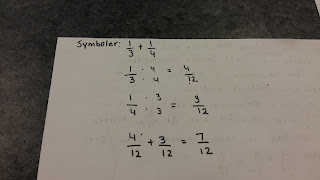 Symboler: 1/3 + 1/4
1/3 · 4/4 = 4/12
1/4 · 3/3 = 3/12
4/12 + 3/12 = 7/12